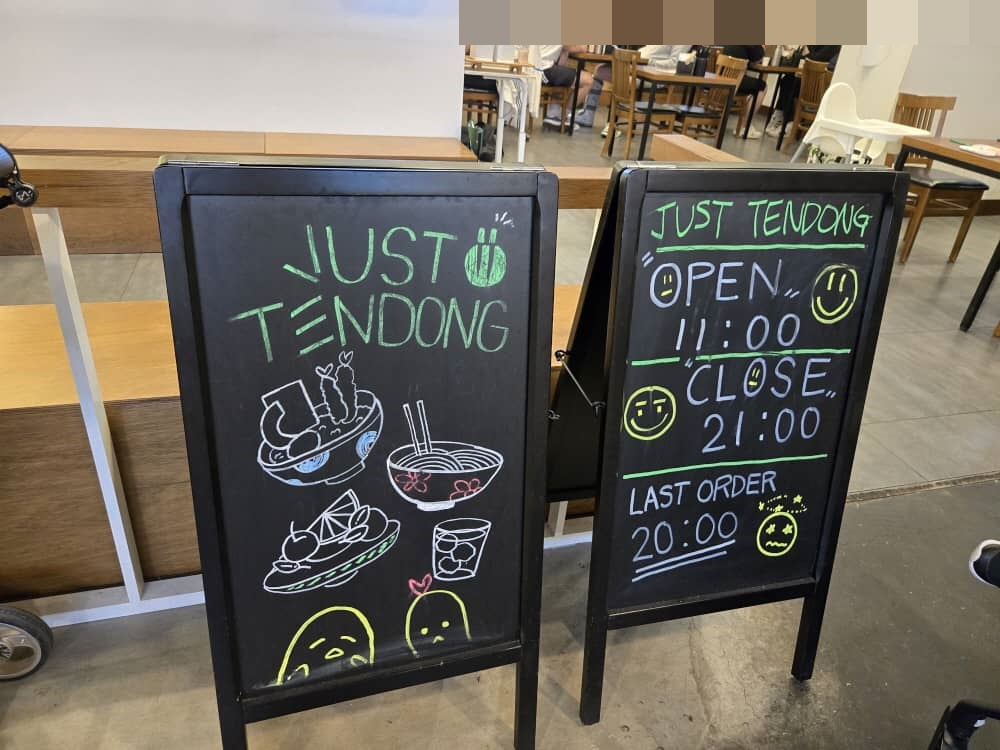 JUST
TENDONG
JUST TENDONG
"OPEN„
11:00
"CLOSE„
21:00
LAST ORDER
20:00